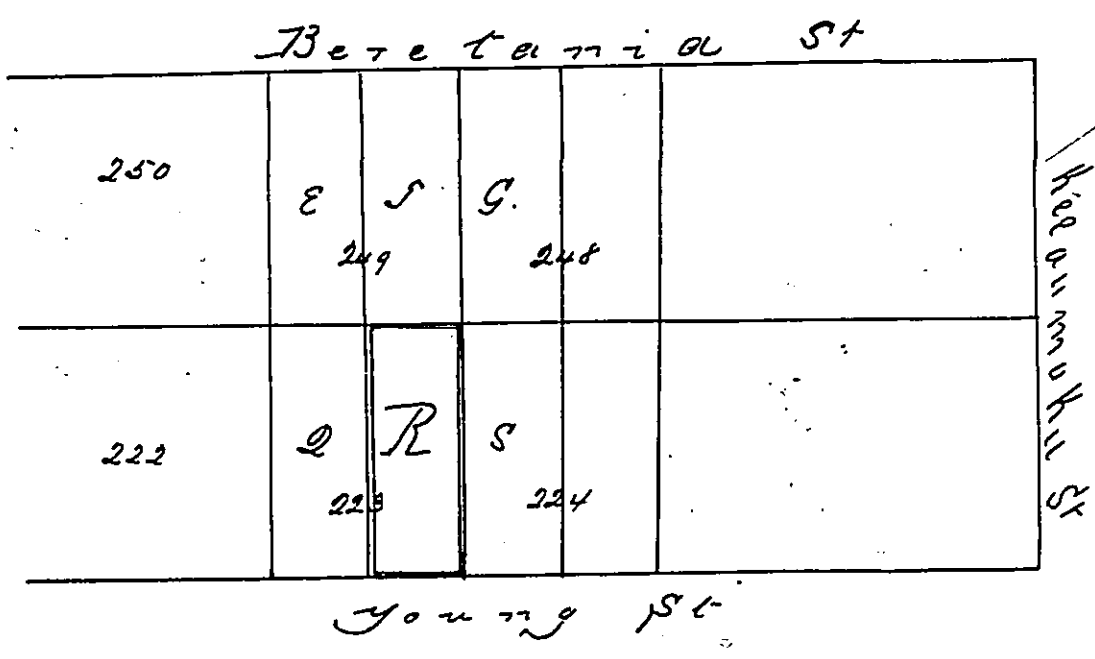 Beretania St
250
E F G.
249 248
Keeaumoku St
222
Q R S
223 224
Young St